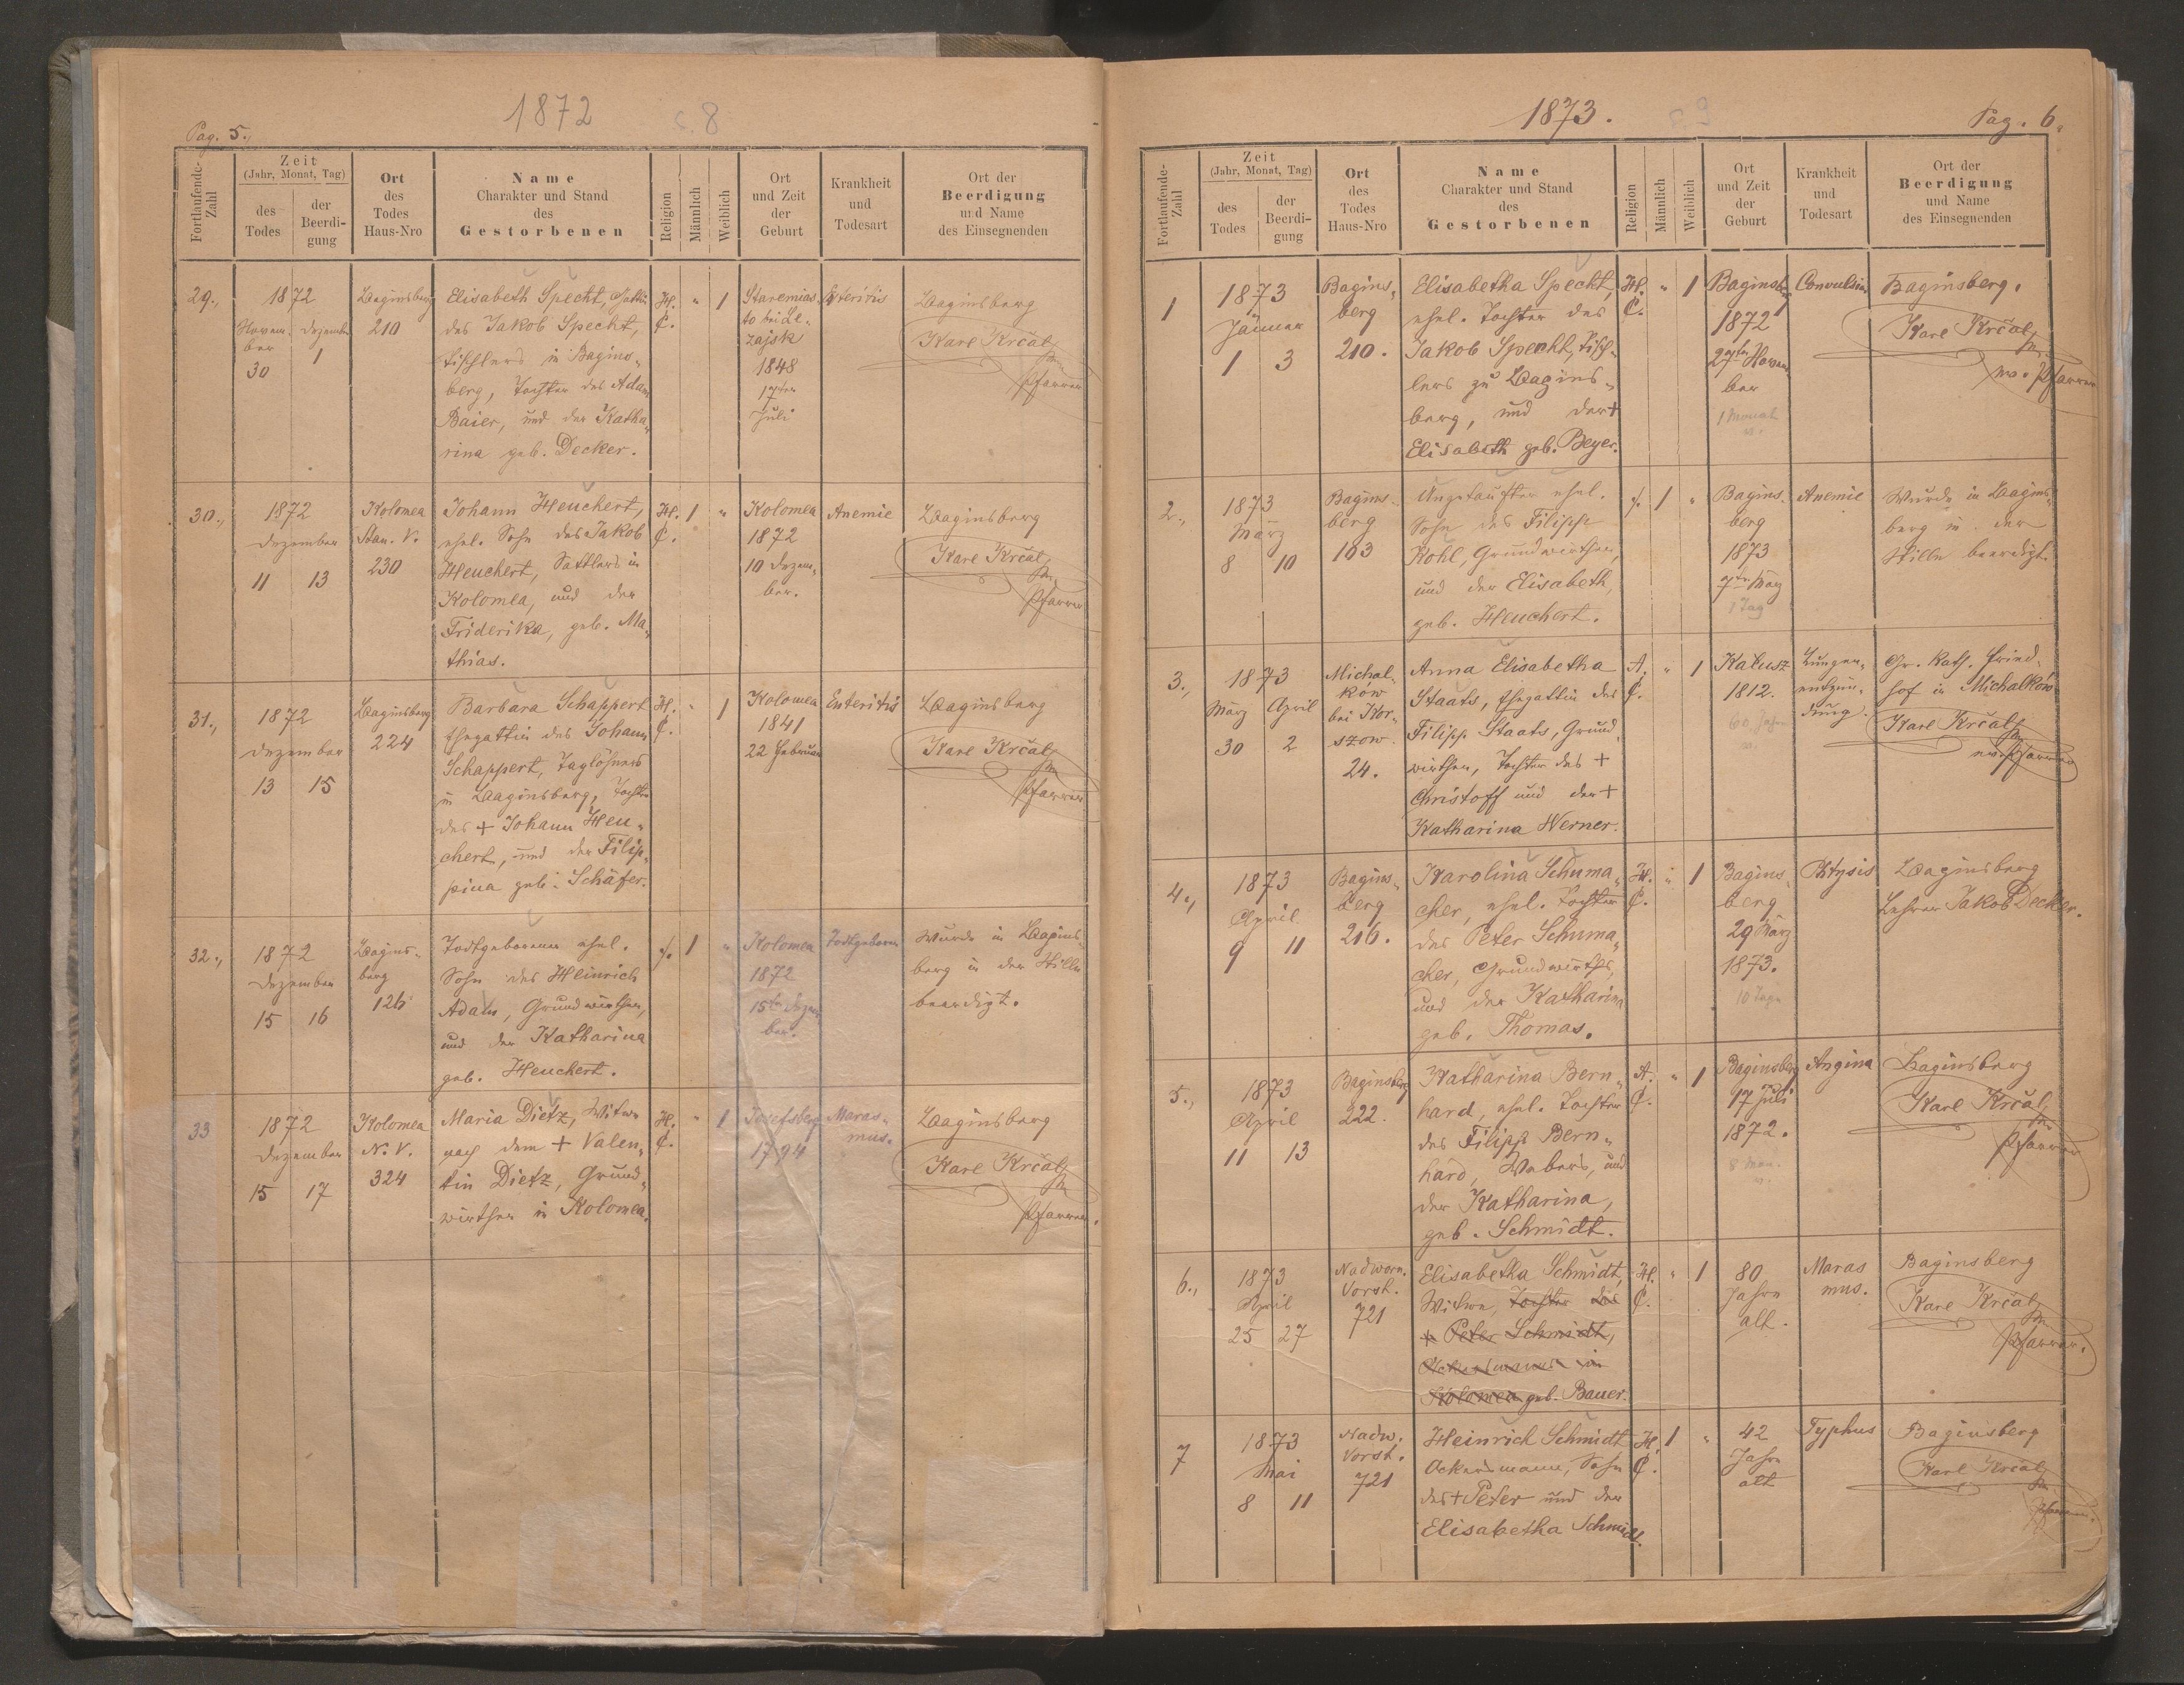 1872
s. 8
Pag. 5.,
Fortlaufende-Zahl
Zeit
(Jahr, Monat, Tag)
des Todes
der Beerdi-gung
Ort
des
Todes
Haus-Nro
Name
Charakter und Stand
des
Gestorbenen
Religion
Männlich
Weiblich
Ort
und Zeit
der
Geburt
Krankheit
und
Todesart
Ort der
Beerdigung
und Name
des Einsegnenden
29.,
1872
Novem-
ber
30
Dezember
1
Baginsberg
210
Elisabeth Specht, Gattin
des Jakob Specht,
Tischlers in Bagins-
berg, Tochter des Adam
Baier, und der Katha-
rina geb. Decker.
H.
C.
"
1
Staremias
to bei Le-
zajsk
1848
17ten
Juli
Enteritis
Baginsberg
Karl Krčal
Pfarrer
30.,
1872
Dezember
11 13
Kolomea
Stan. V.
230
Johann Heuchert,
ehel. Sohn des Jakob
Heuchert, Sattlers in
Kolomea, und der
Friderika, geb. Ma-
thias.
H.
C.
1
"
Kolomea
1872
10 Dezem-
ber.
Anemie
Baginsberg
Karl Krčal
Pfarrer
31.,
1872
Dezember
13 15
Baginsberg
224
Barbara Schappert
Ehegattin des Johann
Schappert, Taglöhners
in Baginsberg, Tochter
des + Johann Heu-
chert, und der Filip-
pina geb. Schäfer.
H.
C.
"
1
Kolomea
1841
22 Februar
Enteritis
Baginsberg
Karl Krčal
Pfarrer
32.,
1872
Dezember
15 16
Bagins-
berg
126
Todtgeborener ehel.
Sohn des Heinrich
Adam, Grundwirthen,
und der Katharina
geb. Heuchert.
./.
1
"
Kolomea
1872
15te Dezem-
ber.
Todtgeboren
Wurde in Bagins-
berg in der Stille
beerdigt.
33
1872
Dezember
15 17
Kolomea
N. V.
324
Maria Dietz, Witwe
nach dem + Valen-
tin Dietz, Grund-
wirthen in Kolomea.
H.
C.
"
1
Josefsberg
1794
Maras-
mus.
Baginsberg
Karl Krčal
Pfarrer.
1873.
s 9
Pag. 6.
Fortlaufende-Zahl
Zeit
(Jahr, Monat, Tag)
des Todes
der Beerdi-gung
Ort
des
Todes
Haus-Nro
Name
Charakter und Stand
des
Gestorbenen
Religion
Männlich
Weiblich
Ort
und Zeit
der
Geburt
Krankheit
und
Todesart
Ort der
Beerdigung
und Name
des Einsegnenden
1
1873
Jänner
1 3
Bagins-
berg
210.
Elisabetha Specht,
ehel. Tochter des
Jakob Specht, Tisch-
lers zu Bagins-
berg, und der +
Elisabeth geb. Beyer.
H.
C.
"
1
Baginsbg
1872
29ten Novem
ber
1 Monat
Convulsion
Baginsberg.
Karl Krčal
Pfarrer
2.,
1873
März
8 10
Bagins-
berg
163
Ungetaufter ehel.
Sohn des Filipp
Kohl, Grundwirthen,
und der Elisabeth,
geb. Heuchert.
./.
1
"
Bagins-
berg
1873
7te März
1 Tag
Anemie
Wurde in Bagins-
berg in der
Stille beerdigt.
3.,
1873
März April
30 2
Michal-
ków
bei Kor-
szow
24.
Anna Elisabetha
Staats, Ehegattin des
Filipp Staats, Grund-
wirthen, Tochter des +
Christoff und der +
Katharina Werner.
A.
C.
"
1
Kałusz
1812.
60 Jahre
Lungen-
entzün-
dung.
Gr. Kath. Fried-
hof in Michalków
Karl Krčal
Pfarrer
4.,
1873
April
9 11
Bagins-
berg
216.
Karolina Schuma-
cher, ehel. Tochter
des Peter Schuma-
cher, Grundwirths,
und der Katharina
geb. Thomas.
H.
C.
"
1
Bagins-
berg
29 März
1873.
10 Tage
Phtysis
Baginsberg
Lehrer Jakob Decker.
5.,
1873
April
11 13
Baginsberg
222.
Katharina Bern-
hard, ehel. Tochter
des Filipp Bern-
hard, Webers, und
der Katharina,
geb. Schmidt.
A.
C.
"
1
Baginsberg
17 Juli
1872.
8 Mon.
Angina
Baginsberg
Karl Krčal
Pfarrer
6.,
1873
April
25 27
Nadworn.
Vorst.
721
Elisabetha Schmidt,
Witwe, Tochter des
+ Peter Schmidt,
Ackersmann in
Kolomea geb. Bauer.
H.
C.
"
1
80
Jahre
alt.
Maras
mus.
Baginsberg
Karl Krčal
Pfarrer.
7
1873
Mai
8 11
Nadw.
Vorst.
721
Heinrich Schmidt
Ackersmann, Sohn
des + Peter und der
Elisabetha Schmidt.
H.
C.
1
"
42
Jahre
alt
Typhus
Baginsberg
Karl Krčal
Pfarrer.